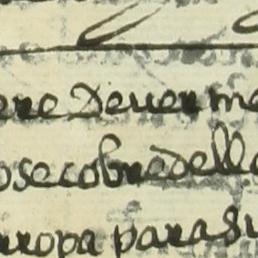 ere Deuer me
ose cobre dello
uropa para su